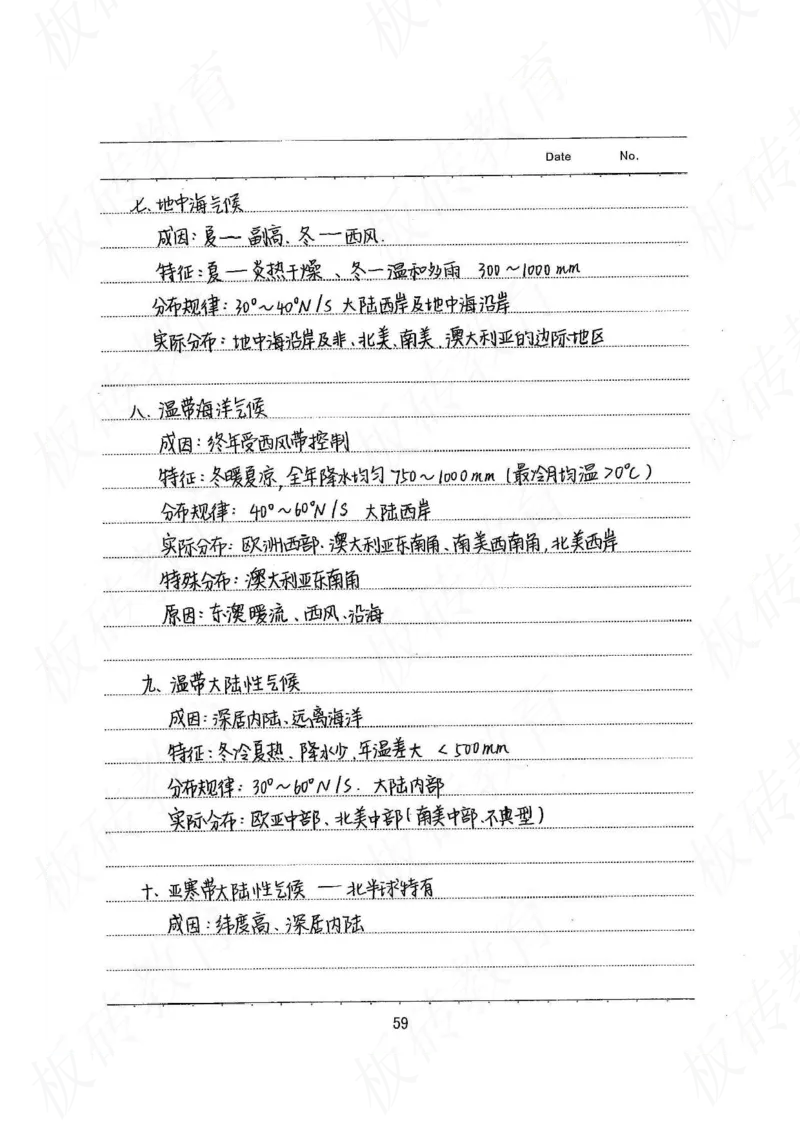 Date No.
七、地中海气候
成因：夏一副高、冬一西风.
特征：夏一炎热干燥、冬一温和多雨 300～1000mm
分布规律：30°～40°N/S 大陆西岸及地中海沿岸
实际分布：地中海沿岸及非、北美、南美、澳大利亚的边际地区
八、温带海洋气候
成因：终年受西风带控制
特征：冬暖夏凉,全年降水均匀 750～1000mm（最冷月均温>0℃）
分布规律：40°～60°N/S 大陆西岸
实际分布：欧洲西部、澳大利亚东南角、南美西南角,北美西岸
特殊分布：澳大利亚东南角
原因：东澳暖流、西风、沿海
九、温带大陆性气候
成因：深居内陆、远离海洋
特征：冬冷夏热、降水少,年温差大 <500mm
分布规律：30°～60°N/S. 大陆内部
实际分布：欧亚中部、北美中部（南美中部、不典型）
十、亚寒带大陆性气候 一北半球特有
成因：纬度高、深居内陆
59
板砖教育